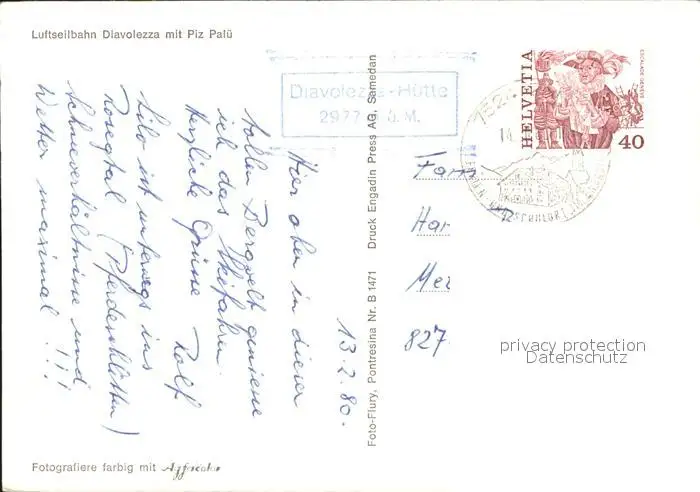 Luftseilbahn Diavolezza mit Piz Palü
Diavolezza-Hütte
2977 ü. M.
HELVETIA
ESCALADE GENÈVE
40
7524
13.2.80.
Hier oben in dieser
tollen Bergwelt geniesse
ich das Skifahren.
Herzliche Grüsse Rolf
Lilo ist unterwegs ins
Rosegtal (Pferdeschlitten)
Schneeverhältnisse und
Wetter maximal !!!
Foto-Flury, Pontresina Nr. B 1471 Druck Engadin Press AG, Samedan
Fam
Har
Mei
827
privacy protection
Datenschutz
Fotografiere farbig mit Agfacolor